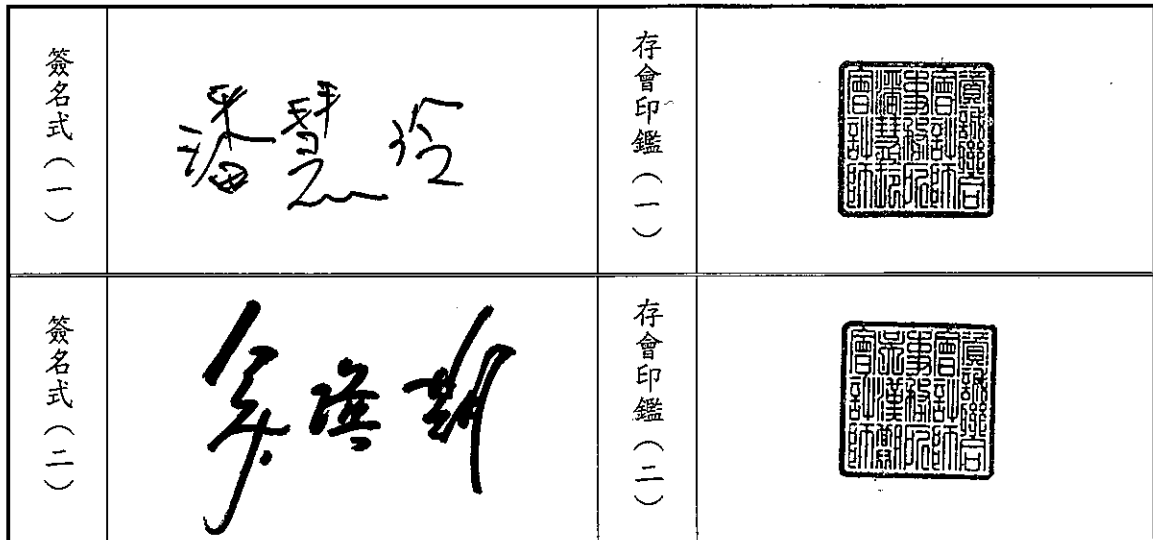 簽名式（一）
潘慧玲
存會印鑑（一）
資誠聯合
會計師
事務所
潘慧玲
會計師
簽名式（二）
吳漢期
存會印鑑（二）
資誠聯合
會計師
事務所
吳漢期
會計師